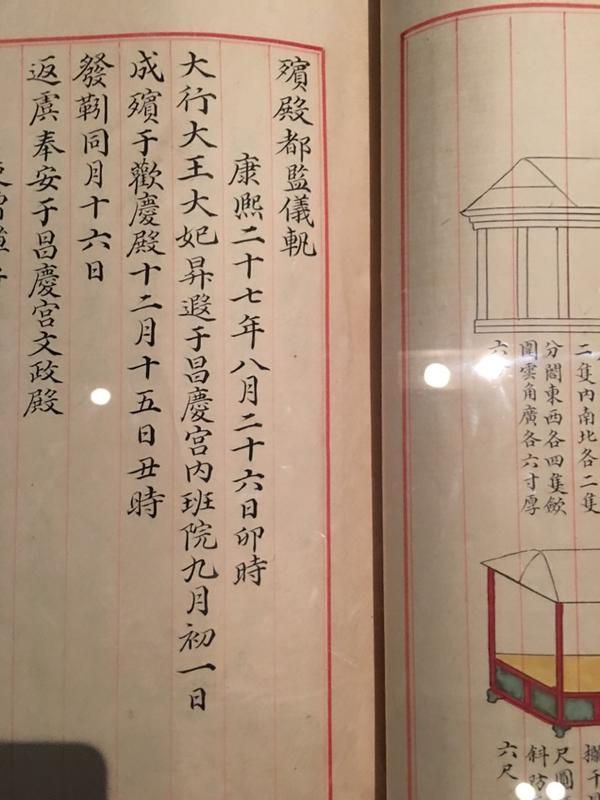 殯殿都監儀軌
康熙二十七年八月二十六日卯時
大行大王大妃昇遐于昌慶宮内班院九月初一日
成殯于歡慶殿十二月十五日丑時
發靷同月十六日
返虞奉安于昌慶宮文政殿
二隻内南北各二隻
分閤東西各四隻歛
圍雲角廣各六寸厚
六
尺圓
斜防
六尺